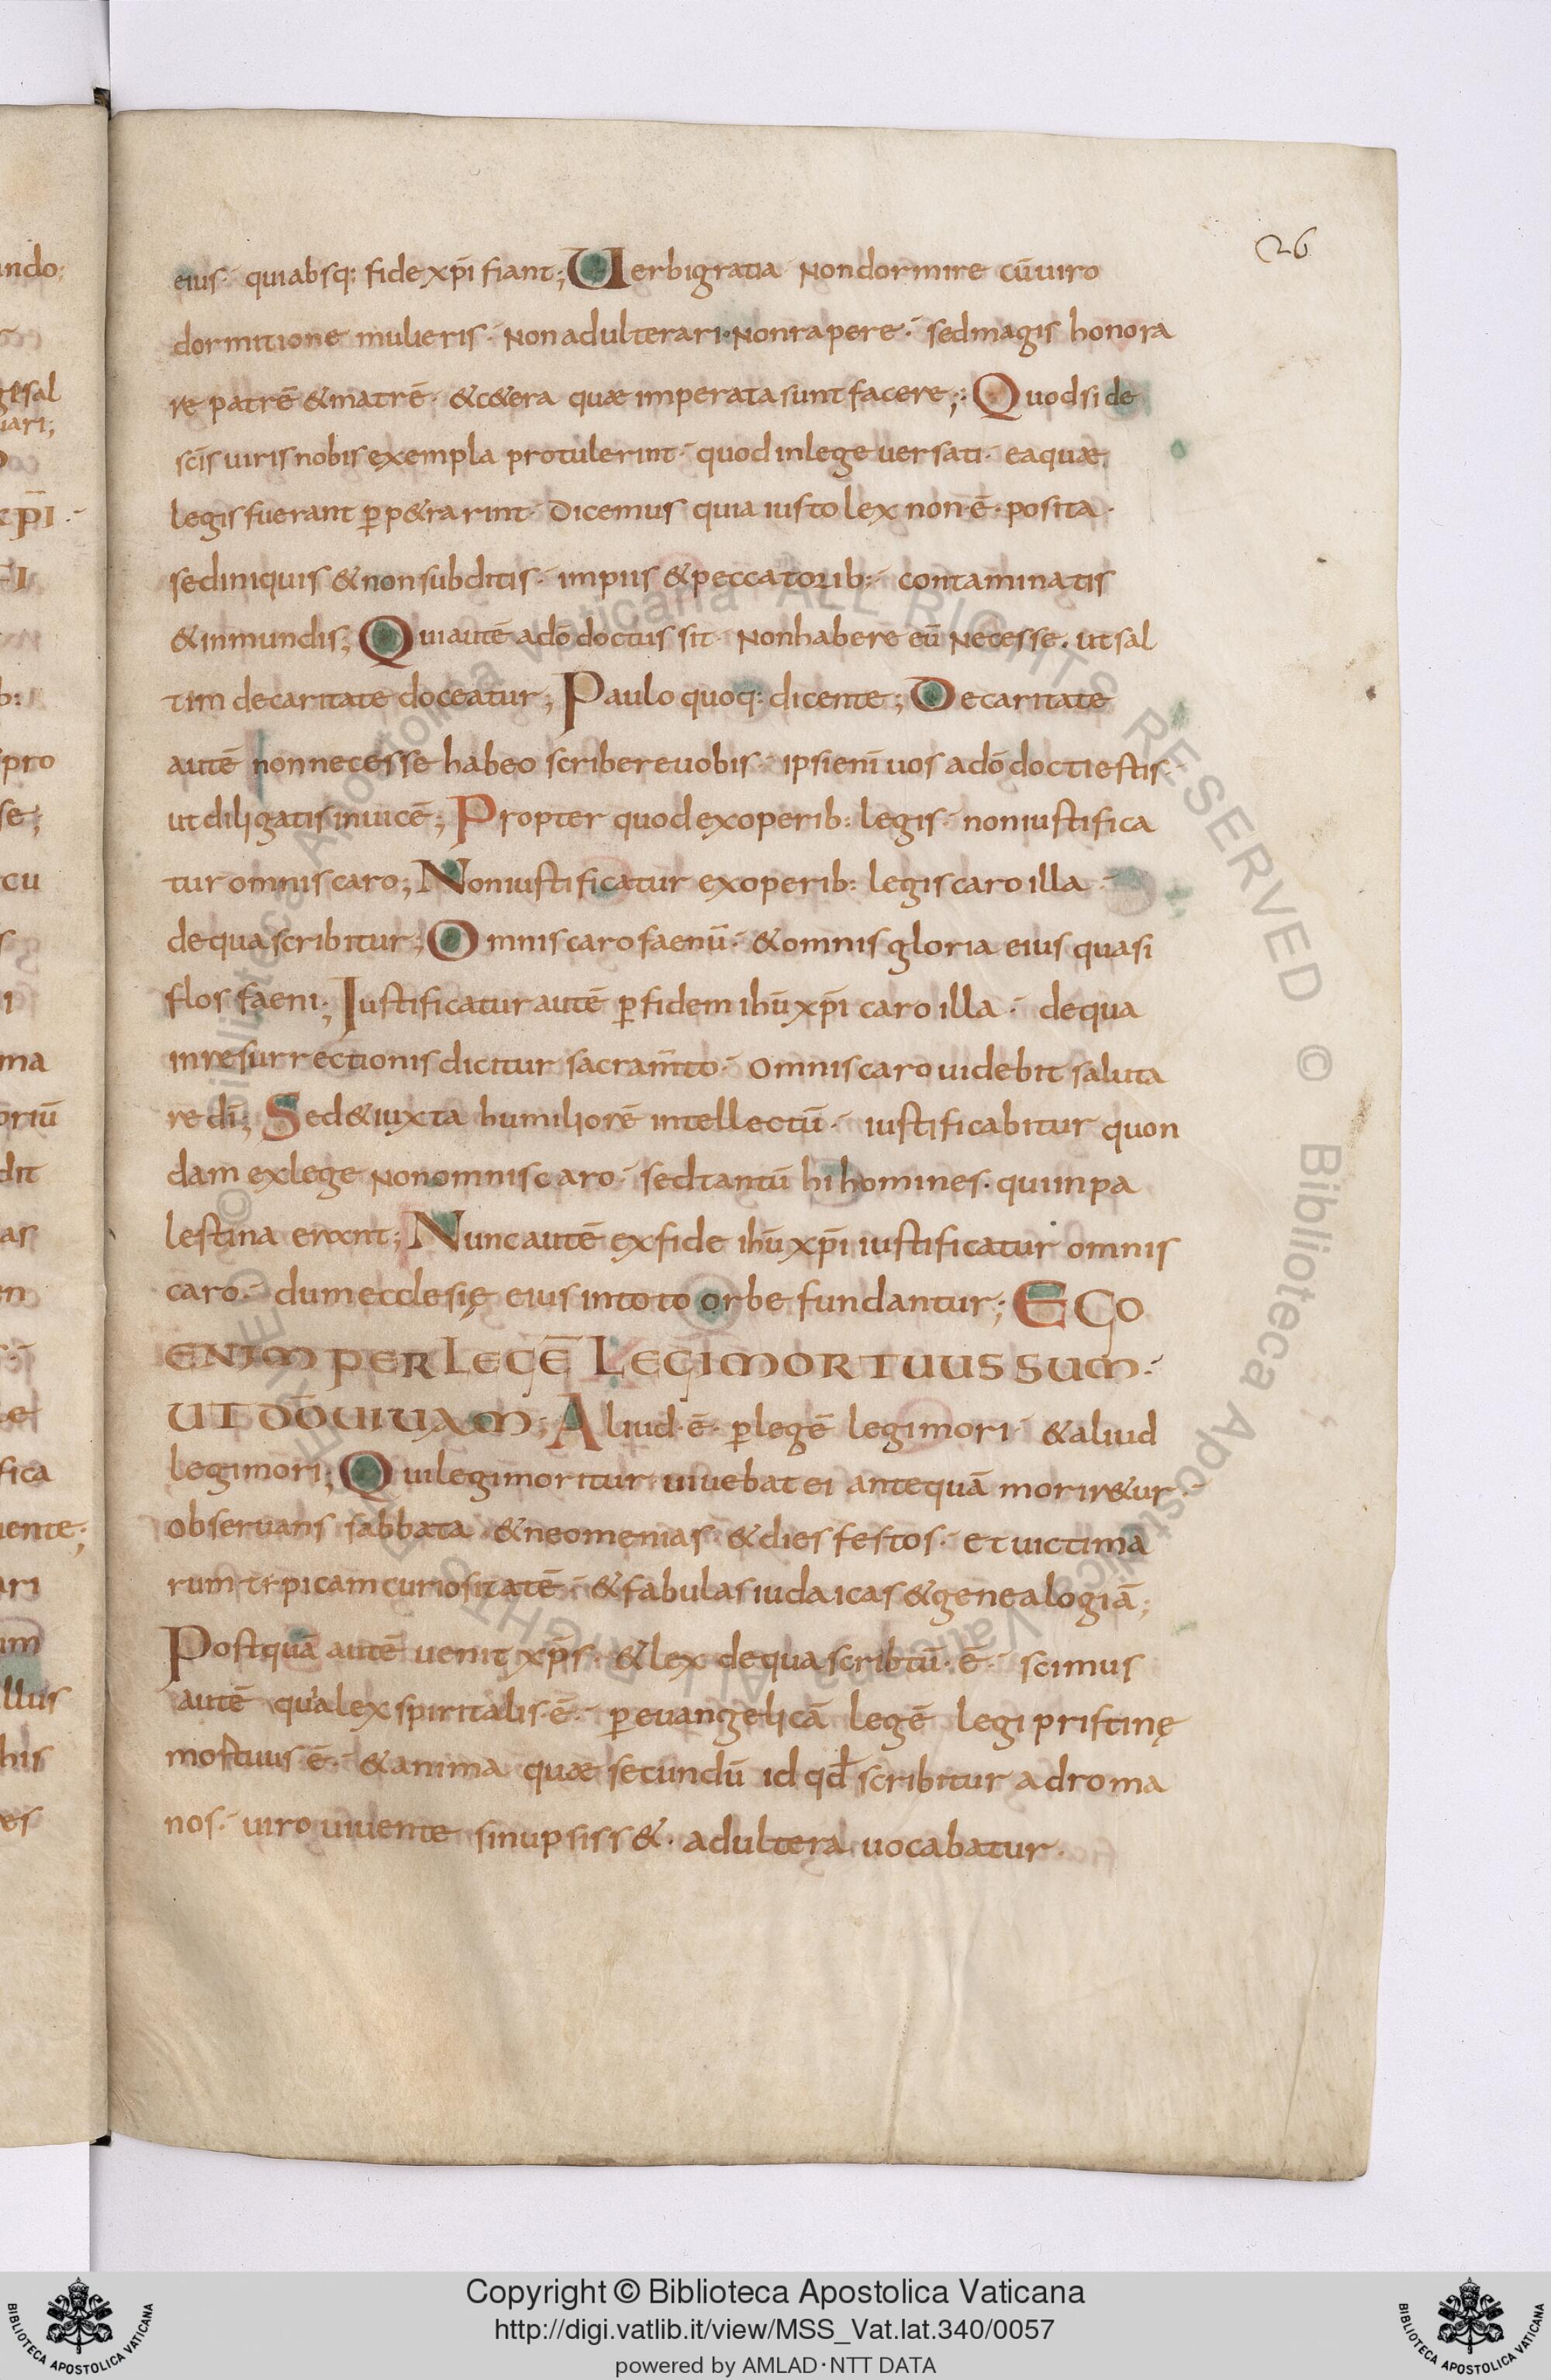 26
eius· quiabsq: fide xp̄i fiant; Uerbigratia Nondormire cū uiro
dormitione mulieris· Non adulterari· Nonrapere· sedmagis honora
re patrē & matrē· & c&era quæ imperata sunt facere; Quodsi de
sc̄is uiris nobis exempla protulerint· quod inlege uersati· ea quæ
legis fuerant ꝑp&rarint· Dicemus quia iusto lex non·ē· posita·
sed iniquis & non subditis· impiis & peccatorib:· contaminatis
& inmundis; Qui autē adō doctus sit· Non habere eū Necesse· ut sal
tim decaritate doceatur; Paulo quoq: dicente; De caritate
autē non necesse habeo scribere uobis· ipsi eni̅ uos adō docti estis·
ut diligatis inuicē; Propter quod exoperib: legis· noniustifica
tur omnis caro; Noniustificatur exoperib: legis caro illa·
dequa scribitur; Omnis caro faenū· & omnis gloria eius quasi
flos faeni; Iustificatur autē ꝑ fidem ihū xp̄i caro illa· dequa
inresurrectionis dicitur sacram̄to· Omnis caro uidebit saluta
re dī; Sed & iuxta humiliorē intellectū· iustificabitur quon
dam exlege Nonomnis caro· sed tantū hi homines· qui inpa
lestina erant; Nunc autē exfide ihū xp̄i iustificatur omnis
caro· dum ecclesię eius intoto orbe fundantur; EGO
ENIM PER LEGĒ LEGI MORTUUS SUM·
UT DŌ UIUAM; Aliud·ē· ꝑ legē legi mori· & aliud
legi mori; Qui legi moritur uiuebat ei antequā morir&ur·
obseruans sabbata & neomenias· & dies festos· et uictima
rum tipicam curiositatē· & fabulas iudaicas & genealogiā;
Postquā autē uenit xp̄s· & lex dequa scribtū·ē· scimus
autē quia lex spiritalis·ē· ꝑ euangelicā legē legi pristinę
mortuus ē· & anima quæ secundū id qđ scribitur adroma
nos· uiro uiuente si nupsiss&· adultera uocabatur·
Copyright © Biblioteca Apostolica Vaticana
http://digi.vatlib.it/view/MSS_Vat.lat.340/0057
powered by AMLAD·NTT DATA
BIBLIOTECA APOSTOLICA VATICANA
BIBLIOTECA APOSTOLICA VATICANA